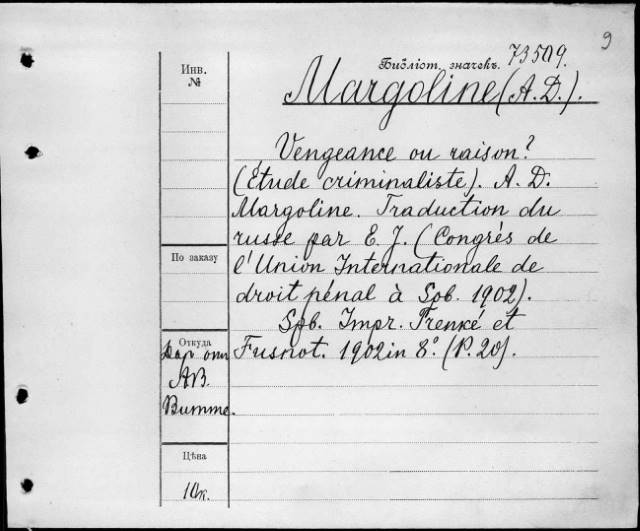 9
Библіот. значекъ. 73509.
Margoline (A. D.).
Инв.
№
Vengeance ou raison?
(Étude criminaliste). A. D.
Margoline. Traduction du
russe par E. J. (Congrès de
l'Union Internationale de
droit pénal à Spb. 1902).
Spb. Impr. Trenké et
Fusnot. 1902 in 8°. (P. 20).
По заказу
Откуда
АВ.
Витте.
Цѣна
10к.